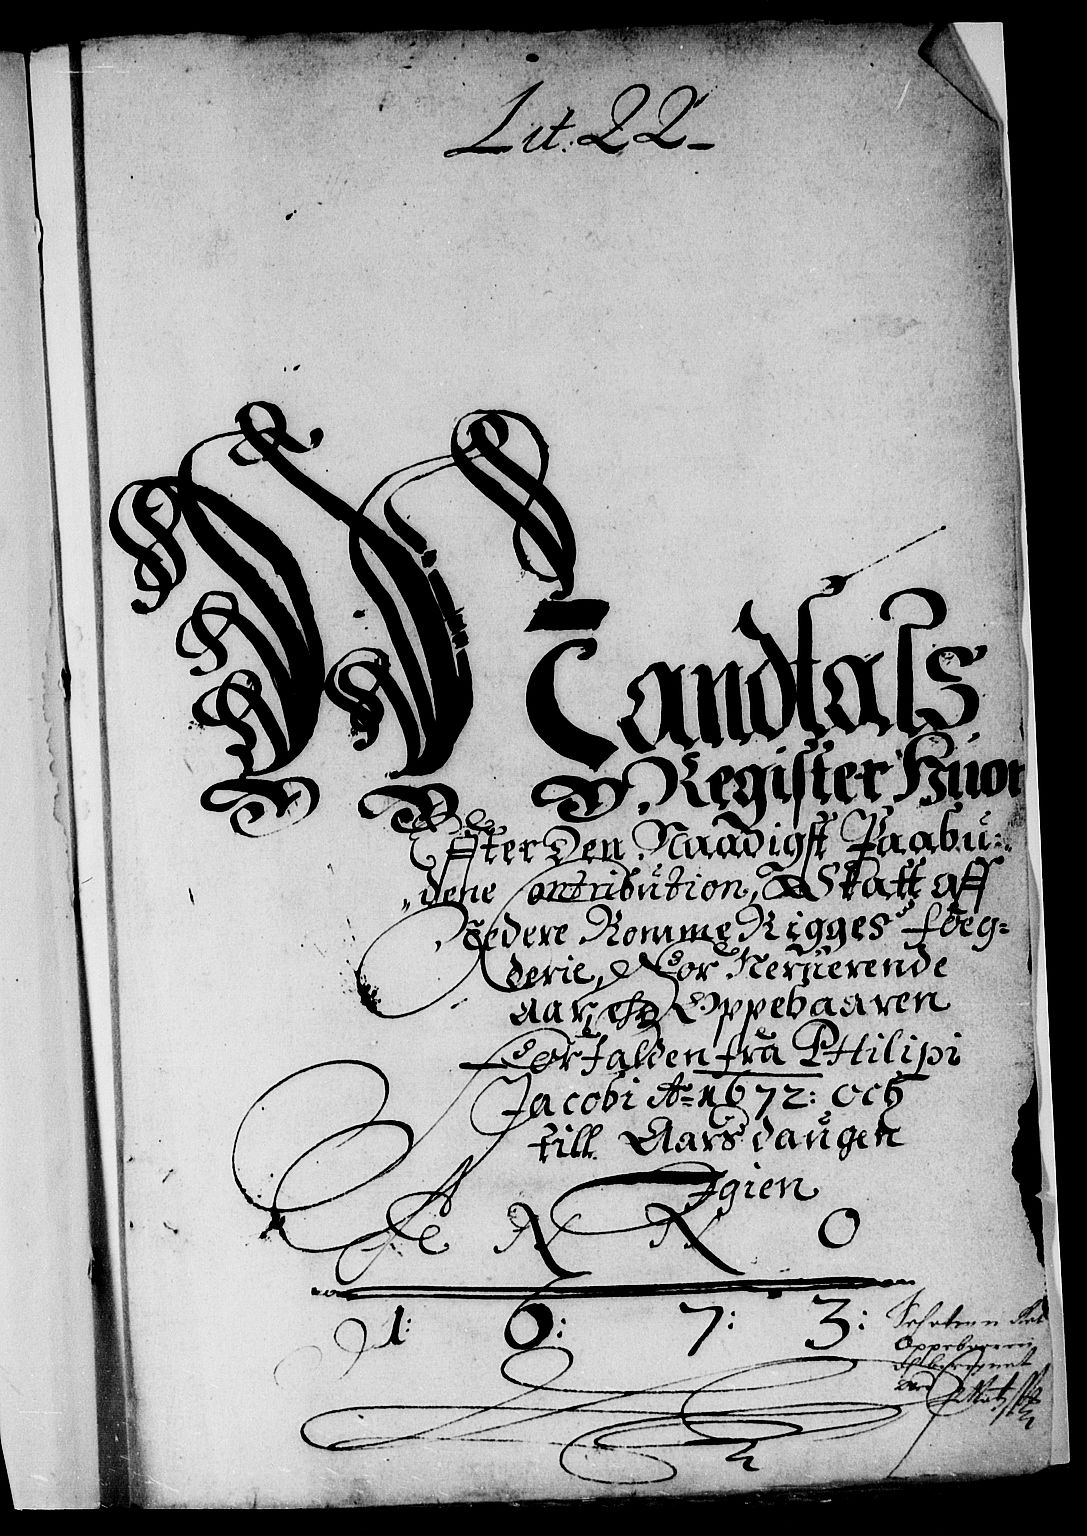 Lit. 22
Mandtals
Register Huor
Effter Den Naadigst Paabu:
dene Contribution, Skatt aff
Nedere Rommerigges foeg=
derie, For Neruerende
Aar, er Oppebaaren
Forfalden fra PHilipi
Jacobi Ao 1672: och
till Aars daugen
Igien
A N N O
1: 6: 7: 3:
Oppebaaren